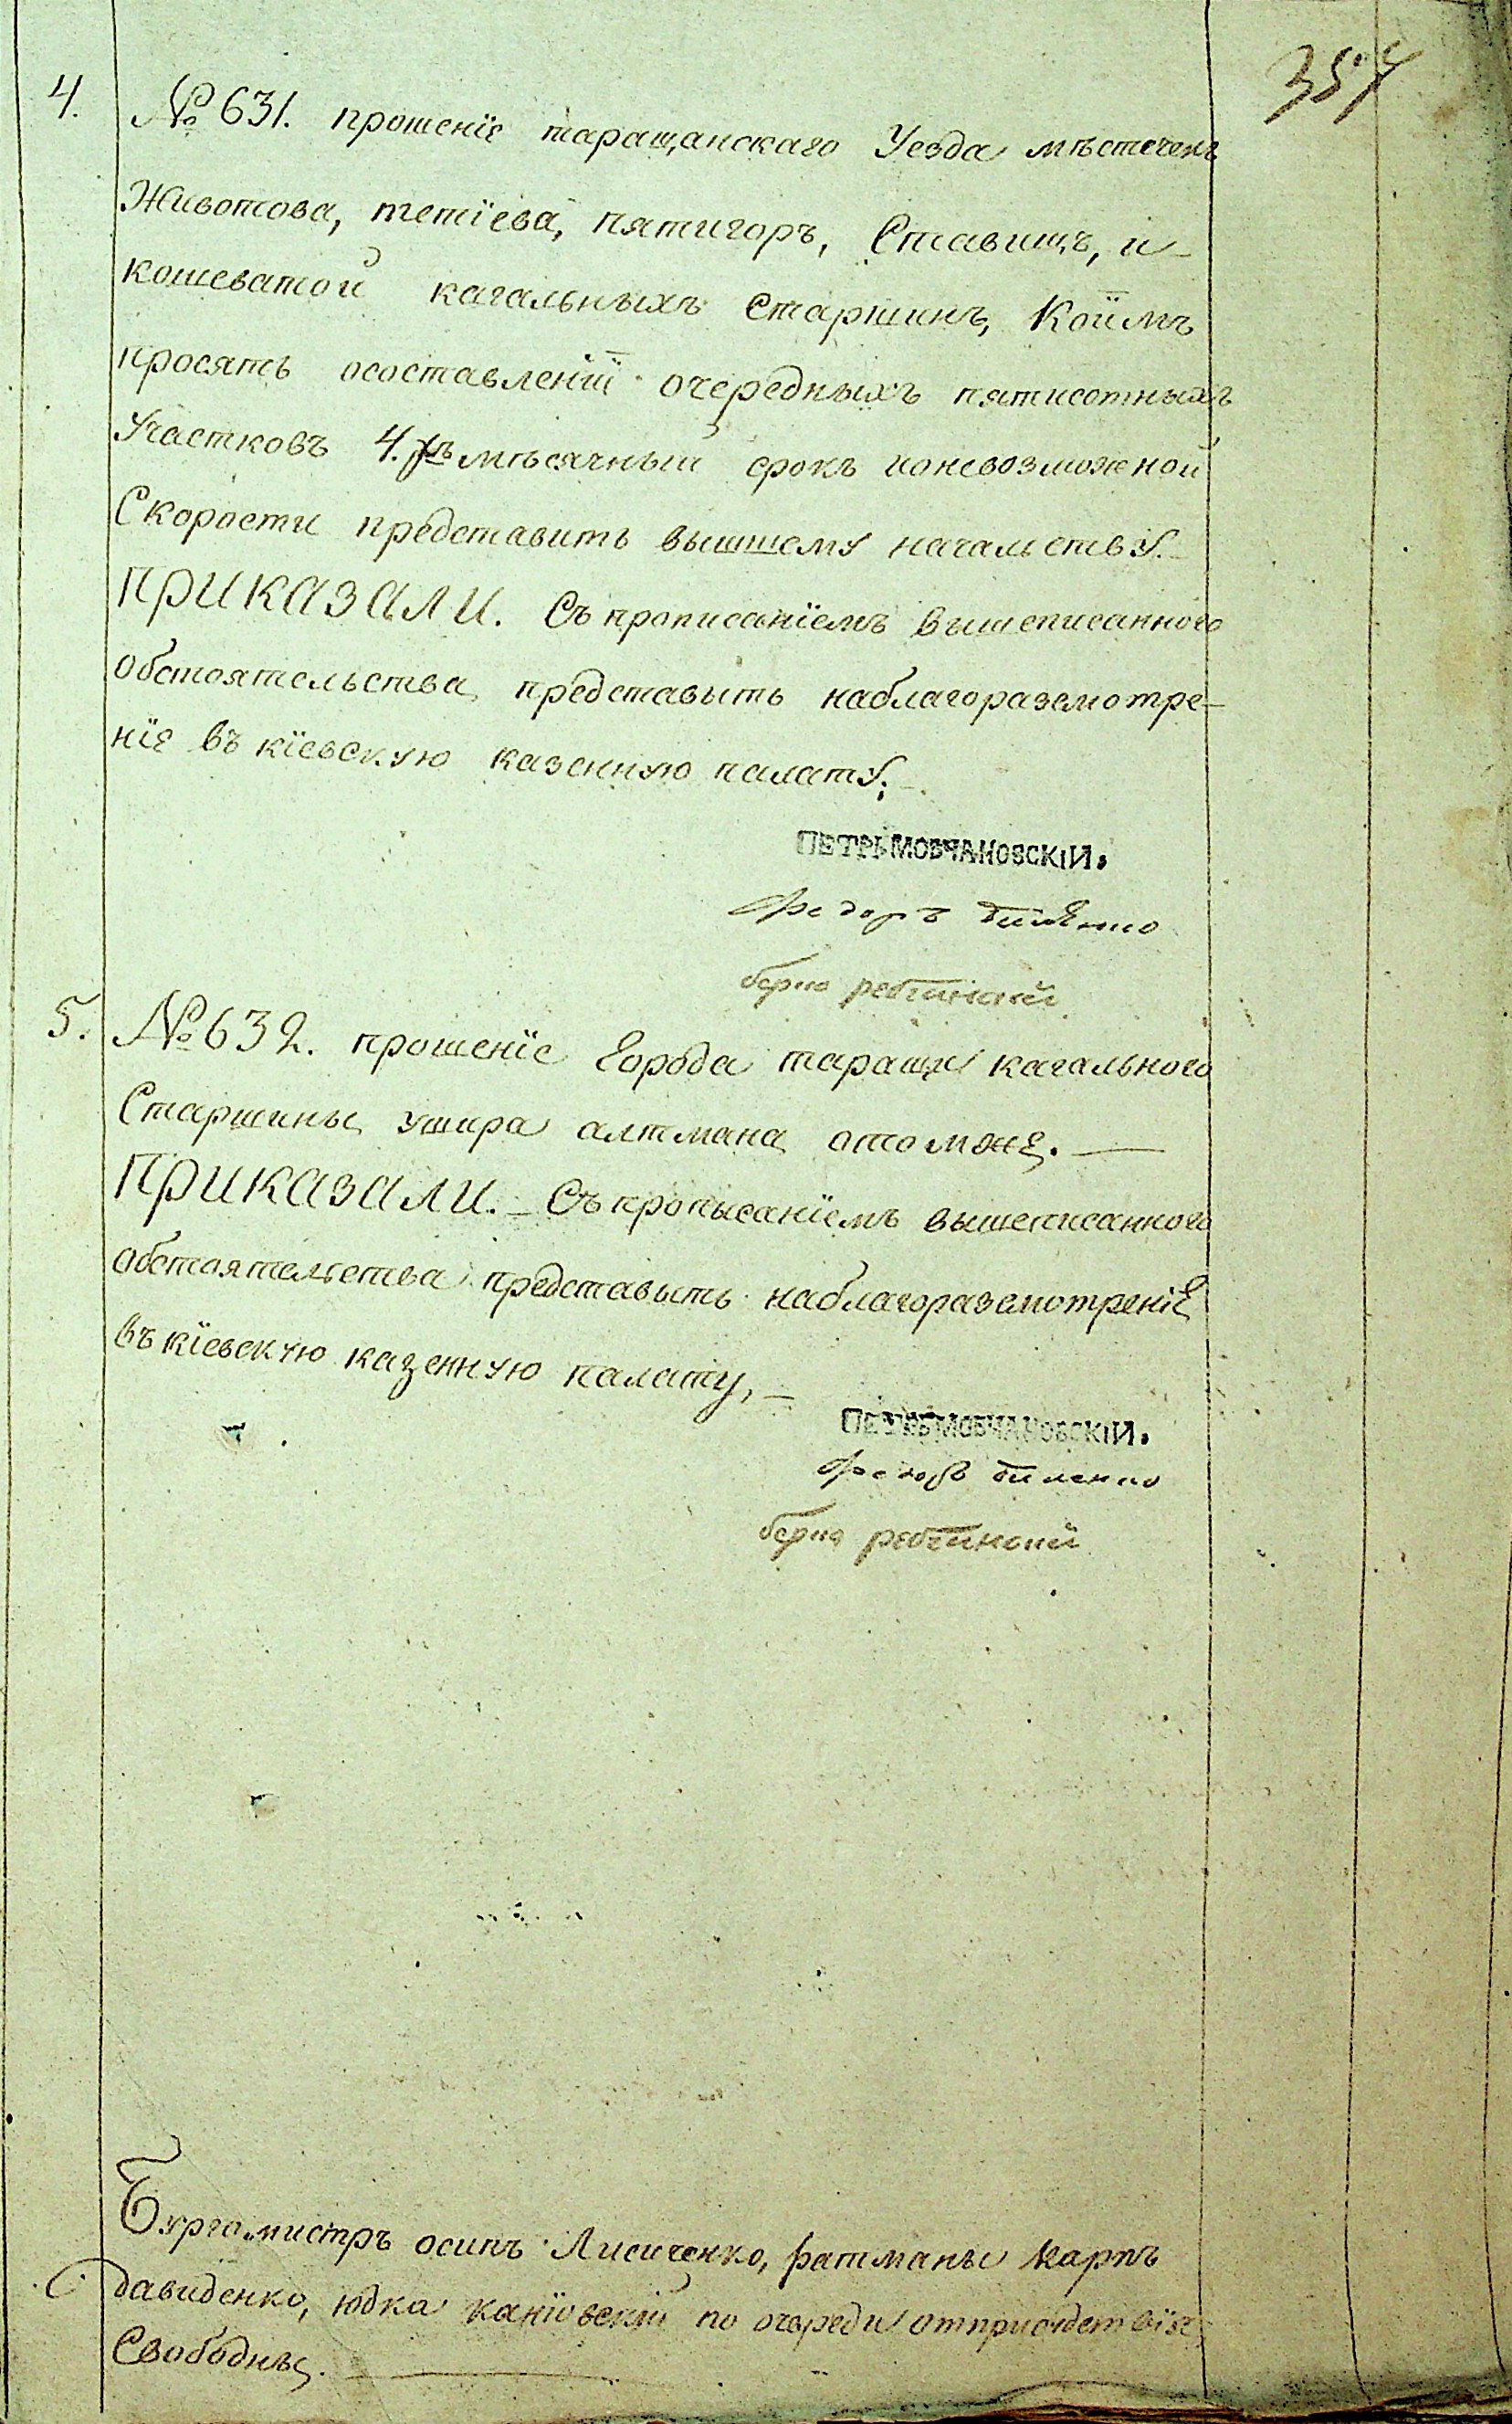 357
4. № 631. прошеніе таращанскаго Уезда мѣстечекъ
Животова, тетіева, пятигоръ, Ставищъ, и
кошеватой кагальныхъ Старшинъ, Коимъ
просятъ осоставленіи очередныхъ пятисотныхъ
Участковъ 4.хъ мѣсячный срокъ поневозможной
Скорости представить вышшему начальству.
ПРИКАЗАЛИ. Съ прописаніемъ вышеписанного
обстоятельства представыть наблагоразсмотре-
ніе въ кіевскую казенную палату;
ПЕТРЬ МОВЧАНОВСКІЙ.
Федоръ биленко
берко
5. № 632. прошеніе Города таращи кагального
Старшины ушира алтмана отомже.
ПРИКАЗАЛИ. Съ прописаніемъ вышеписанного
обстоятельства представыть наблагоразсмотреніе
въ кіевскую казенную палату,
ПЕТРЬ МОВЧАНОВСКІЙ.
Федоръ биленко
берко
Бургомистръ осипъ Лисиченко, ратманы Карпъ
давиденко, юдка каніовскій по очереди отприсудствія
Свободны.